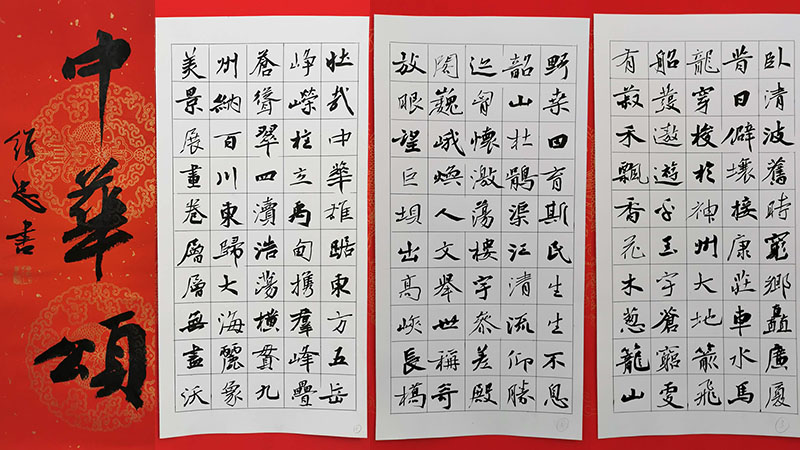 中華頌
壮哉中華雄踞東方五岳
峥嶸柱立禹甸携群峰疊
蒼聳翠四瀆浩蕩橫貫九
州納百川東歸大海麗象
美景展畫卷層層無盡沃
野桒四育斯民生生不息
韶山杜鵑渠江清流仰勝
迩胷懷激蕩樓宇參差殿
閣巍峨焕人文舉世稱奇
放眼望巨坝出高峡長橋
臥清波舊時窮鄉矗廣廈
昔日僻壤接康莊車水馬
龍穿梭於神州大地箭飛
船護遨遊乎玉宇滄窮雯
有菽禾飄香花木葱蘢山